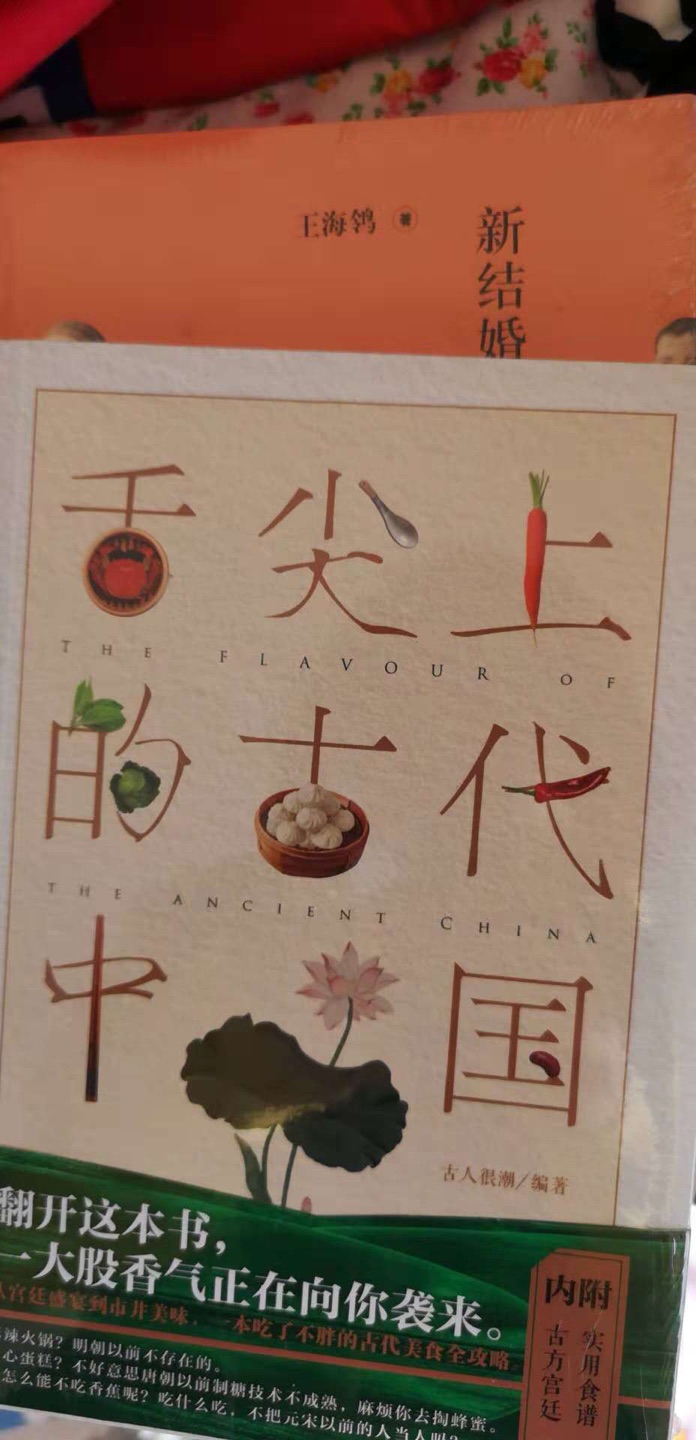 王海鸰 著
新结婚
舌尖上
THE FLAVOUR OF
的古代
THE ANCIENT CHINA
中国
古人很潮/编著
翻开这本书，
一大股香气正在向你袭来。
从宫廷盛宴到市井美味，一本吃了不胖的古代美食全攻略
辣火锅？明朝以前不存在的。
心蛋糕？不好意思唐朝以前制糖技术不成熟，麻烦你去掏蜂蜜。
怎么能不吃香蕉呢？吃什么吃，不把元宋以前的人当人吗？
内附
古方宫廷
实用食谱